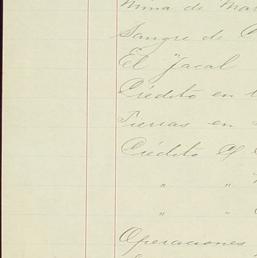 Mina de Mar
Sangre de C
El "Jacal
Crédito en
Tierras en
Crédito
" "
" "
Operaciones